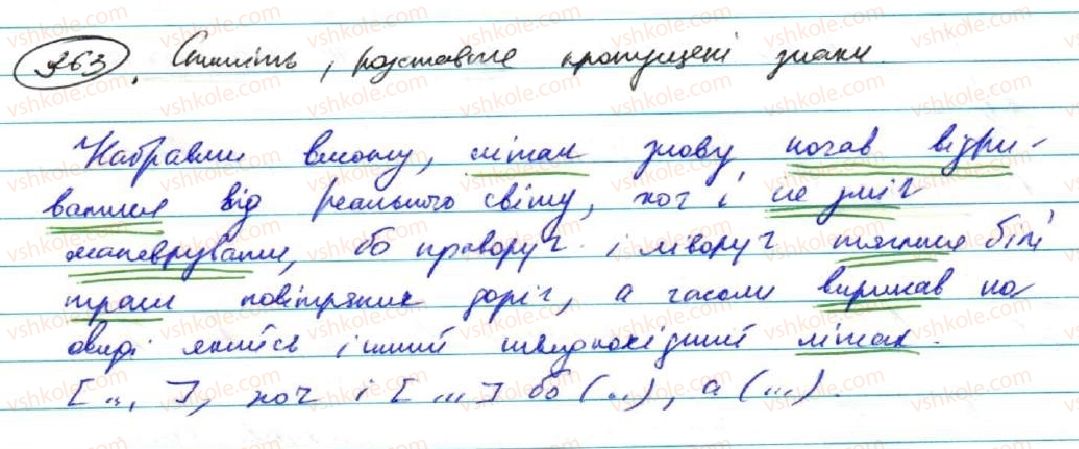 263. Спишіть, розставте пропущені знаки.
Набравши висоту, літак знову почав відри-
ватися від реального світу, хоч і не зміг
маневрувати, бо праворуч і ліворуч тяглися білі
траси повітряних доріг, а часом виринав на
овиді якийсь інший швидкохідний літак.
[ .., ], хоч і [ ... ] бо (...), а (...).